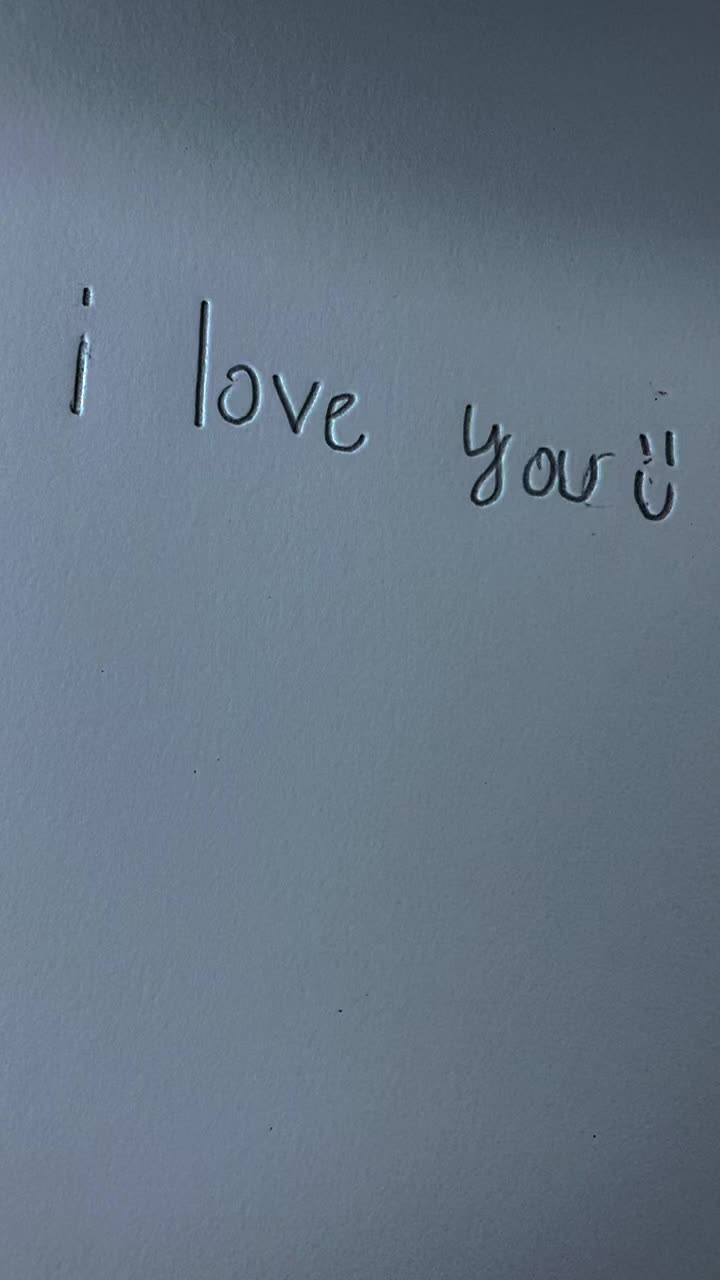 i love you :)